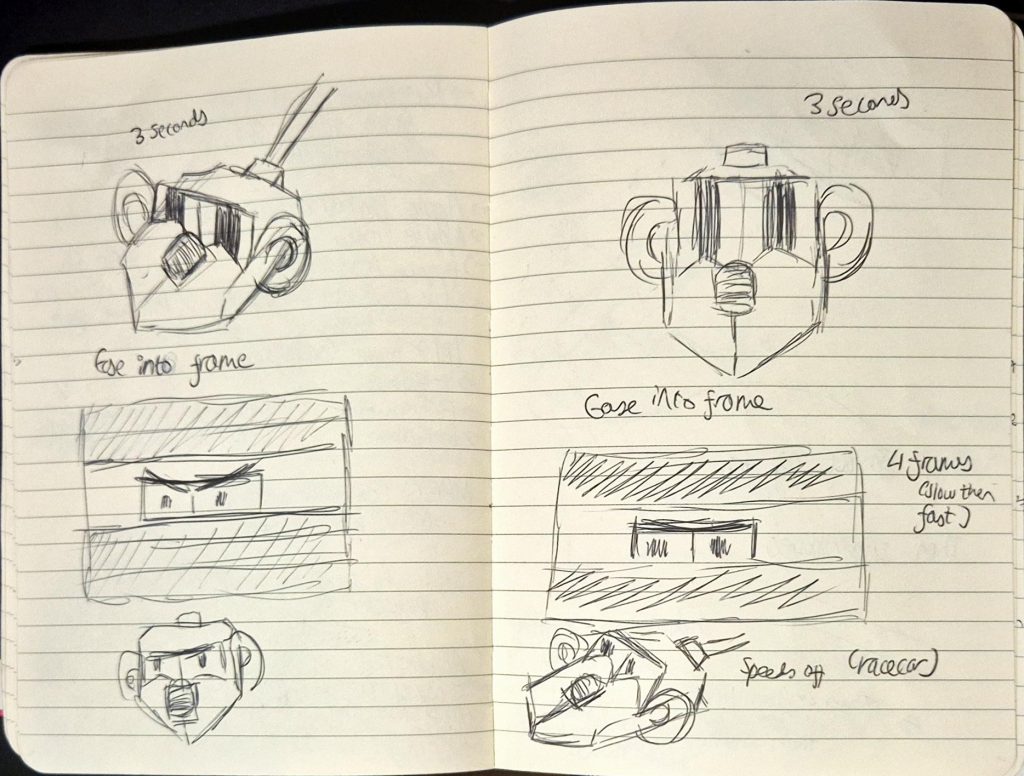 3 seconds
Ease into frame
3 seconds
Ease into frame
4 frames
(slow then
fast)
Speeds off (racecar)